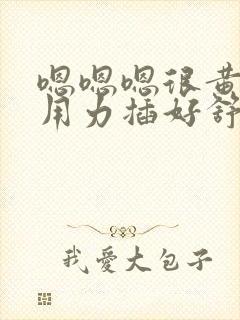 嗯嗯嗯很黄
用力插好舒
我愛大包子